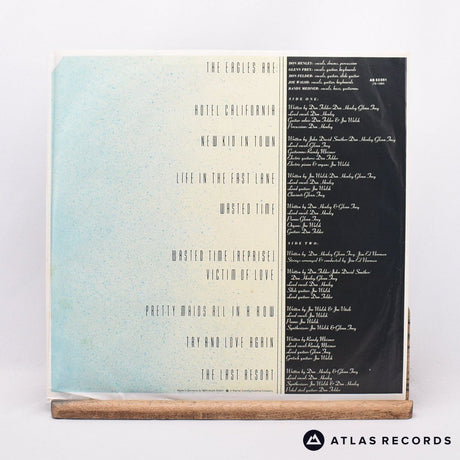 THE EAGLES ARE:
DON HENLEY: vocals, drums, percussion
GLENN FREY: vocals, guitars, keyboards
DON FELDER: vocals, guitars, slide guitar
JOE WALSH: vocals, guitars, keyboards
RANDY MEISNER: vocals, bass, guitarrone
SIDE ONE:
HOTEL CALIFORNIA
Written by Don Felder Don Henley Glenn Frey
Lead vocal: Don Henley
Guitar solos: Don Felder & Joe Walsh
Percussion: Don Henley
NEW KID IN TOWN
Written by John David Souther Don Henley Glenn Frey
Lead vocal: Glenn Frey
Guitarrone: Randy Meisner
Electric guitars: Don Felder
Electric piano & organ: Joe Walsh
LIFE IN THE FAST LANE
Written by Joe Walsh Don Henley Glenn Frey
Lead vocal: Don Henley
Lead guitar: Joe Walsh
Clavinet: Glenn Frey
WASTED TIME
Written by Don Henley & Glenn Frey
Lead vocal: Don Henley
Piano: Glenn Frey
Organ: Joe Walsh
Guitar: Don Felder
SIDE TWO:
WASTED TIME (REPRISE)
Written by Don Henley Glenn Frey Jim Ed Norman
Strings arranged & conducted by Jim Ed Norman
VICTIM OF LOVE
Written by Don Felder John David Souther
Don Henley Glenn Frey
Lead vocal: Don Henley
Slide guitar: Joe Walsh
Lead guitar: Don Felder
PRETTY MAIDS ALL IN A ROW
Written by Joe Walsh & Joe Vitale
Lead vocal: Joe Walsh
Piano: Joe Walsh
Synthesizer: Joe Walsh & Glenn Frey
TRY AND LOVE AGAIN
Written by Randy Meisner
Lead vocal: Randy Meisner
Lead guitar: Glenn Frey
Gretsch guitar: Joe Walsh
THE LAST RESORT
Written by Don Henley & Glenn Frey
Lead vocal: Don Henley
Synthesizer: Joe Walsh & Don Henley
Pedal steel guitar: Don Felder
ATLAS RECORDS